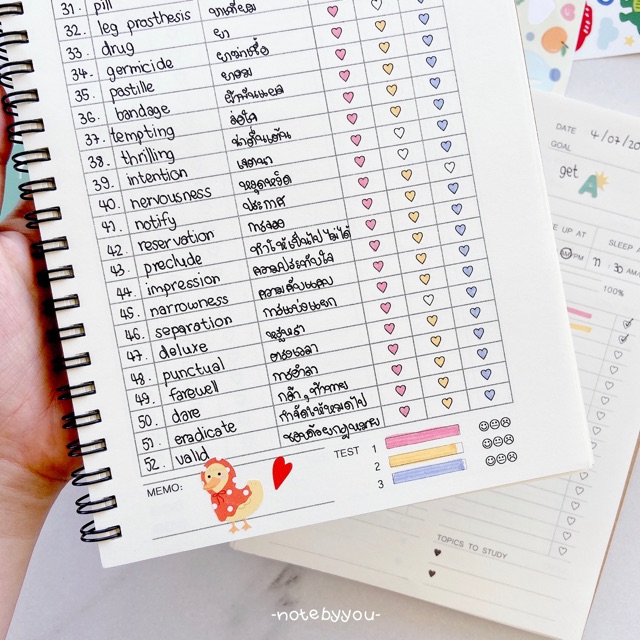 31. pill
32. leg prosthesis ขาเทียม
33. drug ยา
34. germicide ยาฆ่าเชื้อ
35. pastille ยาอม
36. bandage ผ้าพันแผล
37. tempting ล่อใจ
38. thrilling น่าตื่นเต้น
39. intention เจตนา
40. nervousness หงุดหงิด
41. notify ประกาศ
42. reservation การจอง
43. preclude ทำให้เป็นไปไม่ได้
44. impression ความประทับใจ
45. narrowness ความคับแคบ
46. separation การแบ่งแยก
47. deluxe หรูหรา
48. punctual ตรงเวลา
49. farewell การอำลา
50. dare กล้า, ท้าทาย
51. eradicate กำจัดให้หมดไป
52. valid ชอบด้วยกฎหมาย
MEMO:
TEST 1
2
3
DATE 4/07/20
GOAL
get A
E UP AT
SLEEP A
AM PM 11 : 30 AM
100%
TOPICS TO STUDY
-notebyyou-